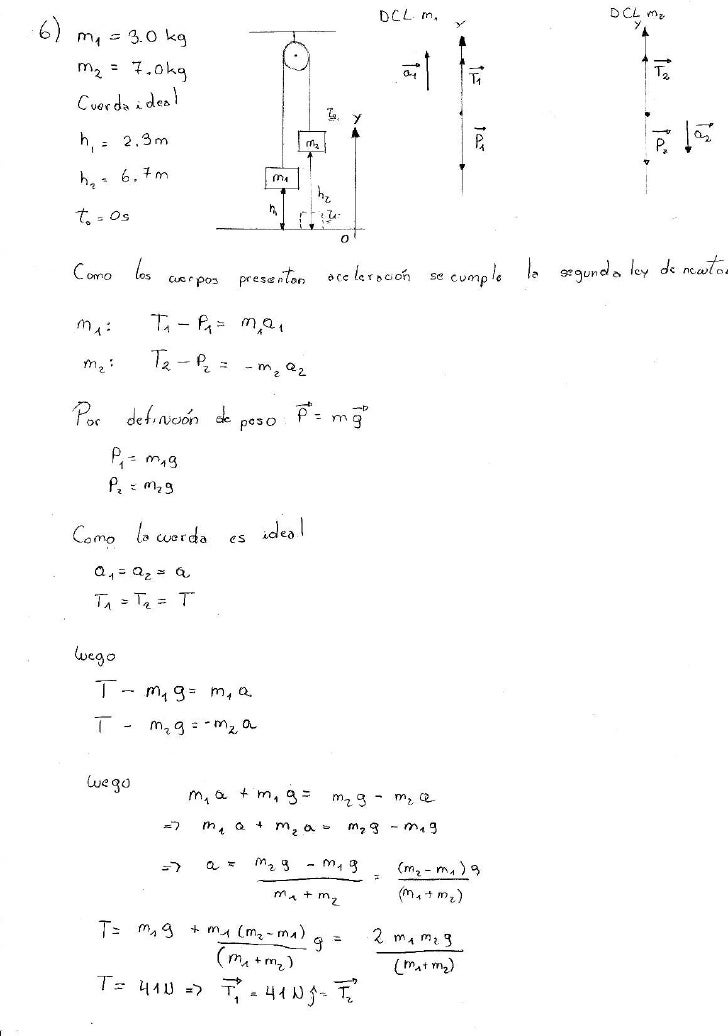 6) m₁ = 3.0 kg
m₂ = 7.0kg
Cuerda ideal
h₁ = 2.3m
h₂ = 6.7m
t₀ = 0s
m₁
m₂
h₂
Y
O
DCL m₁
Y
a₁
T₁
P₁
DCL m₂
Y
T₂
P₂
a₂
Como los cuerpos presentan aceleración se cumple la segunda ley de newto
m₁: T₁ - P₁ = m₁a₁
m₂: T₂ - P₂ = -m₂a₂
Por definición de peso P⃗ = mg⃗
P₁ = m₁g
P₂ = m₂g
Como la cuerda es ideal
a₁ = a₂ = a
T₁ = T₂ = T
luego
T - m₁g = m₁a
T - m₂g = -m₂a
luego
m₁a + m₁g = m₂g - m₂a
=> m₁a + m₂a = m₂g - m₁g
=> a = (m₂g - m₁g)/(m₁ + m₂) = (m₂ - m₁)g/(m₁ + m₂)
T = m₁g + m₁(m₂-m₁)/(m₁+m₂) g = 2m₁m₂g/(m₁+m₂)
T = 41N => T⃗₁ = 41N ĵ = T⃗₂